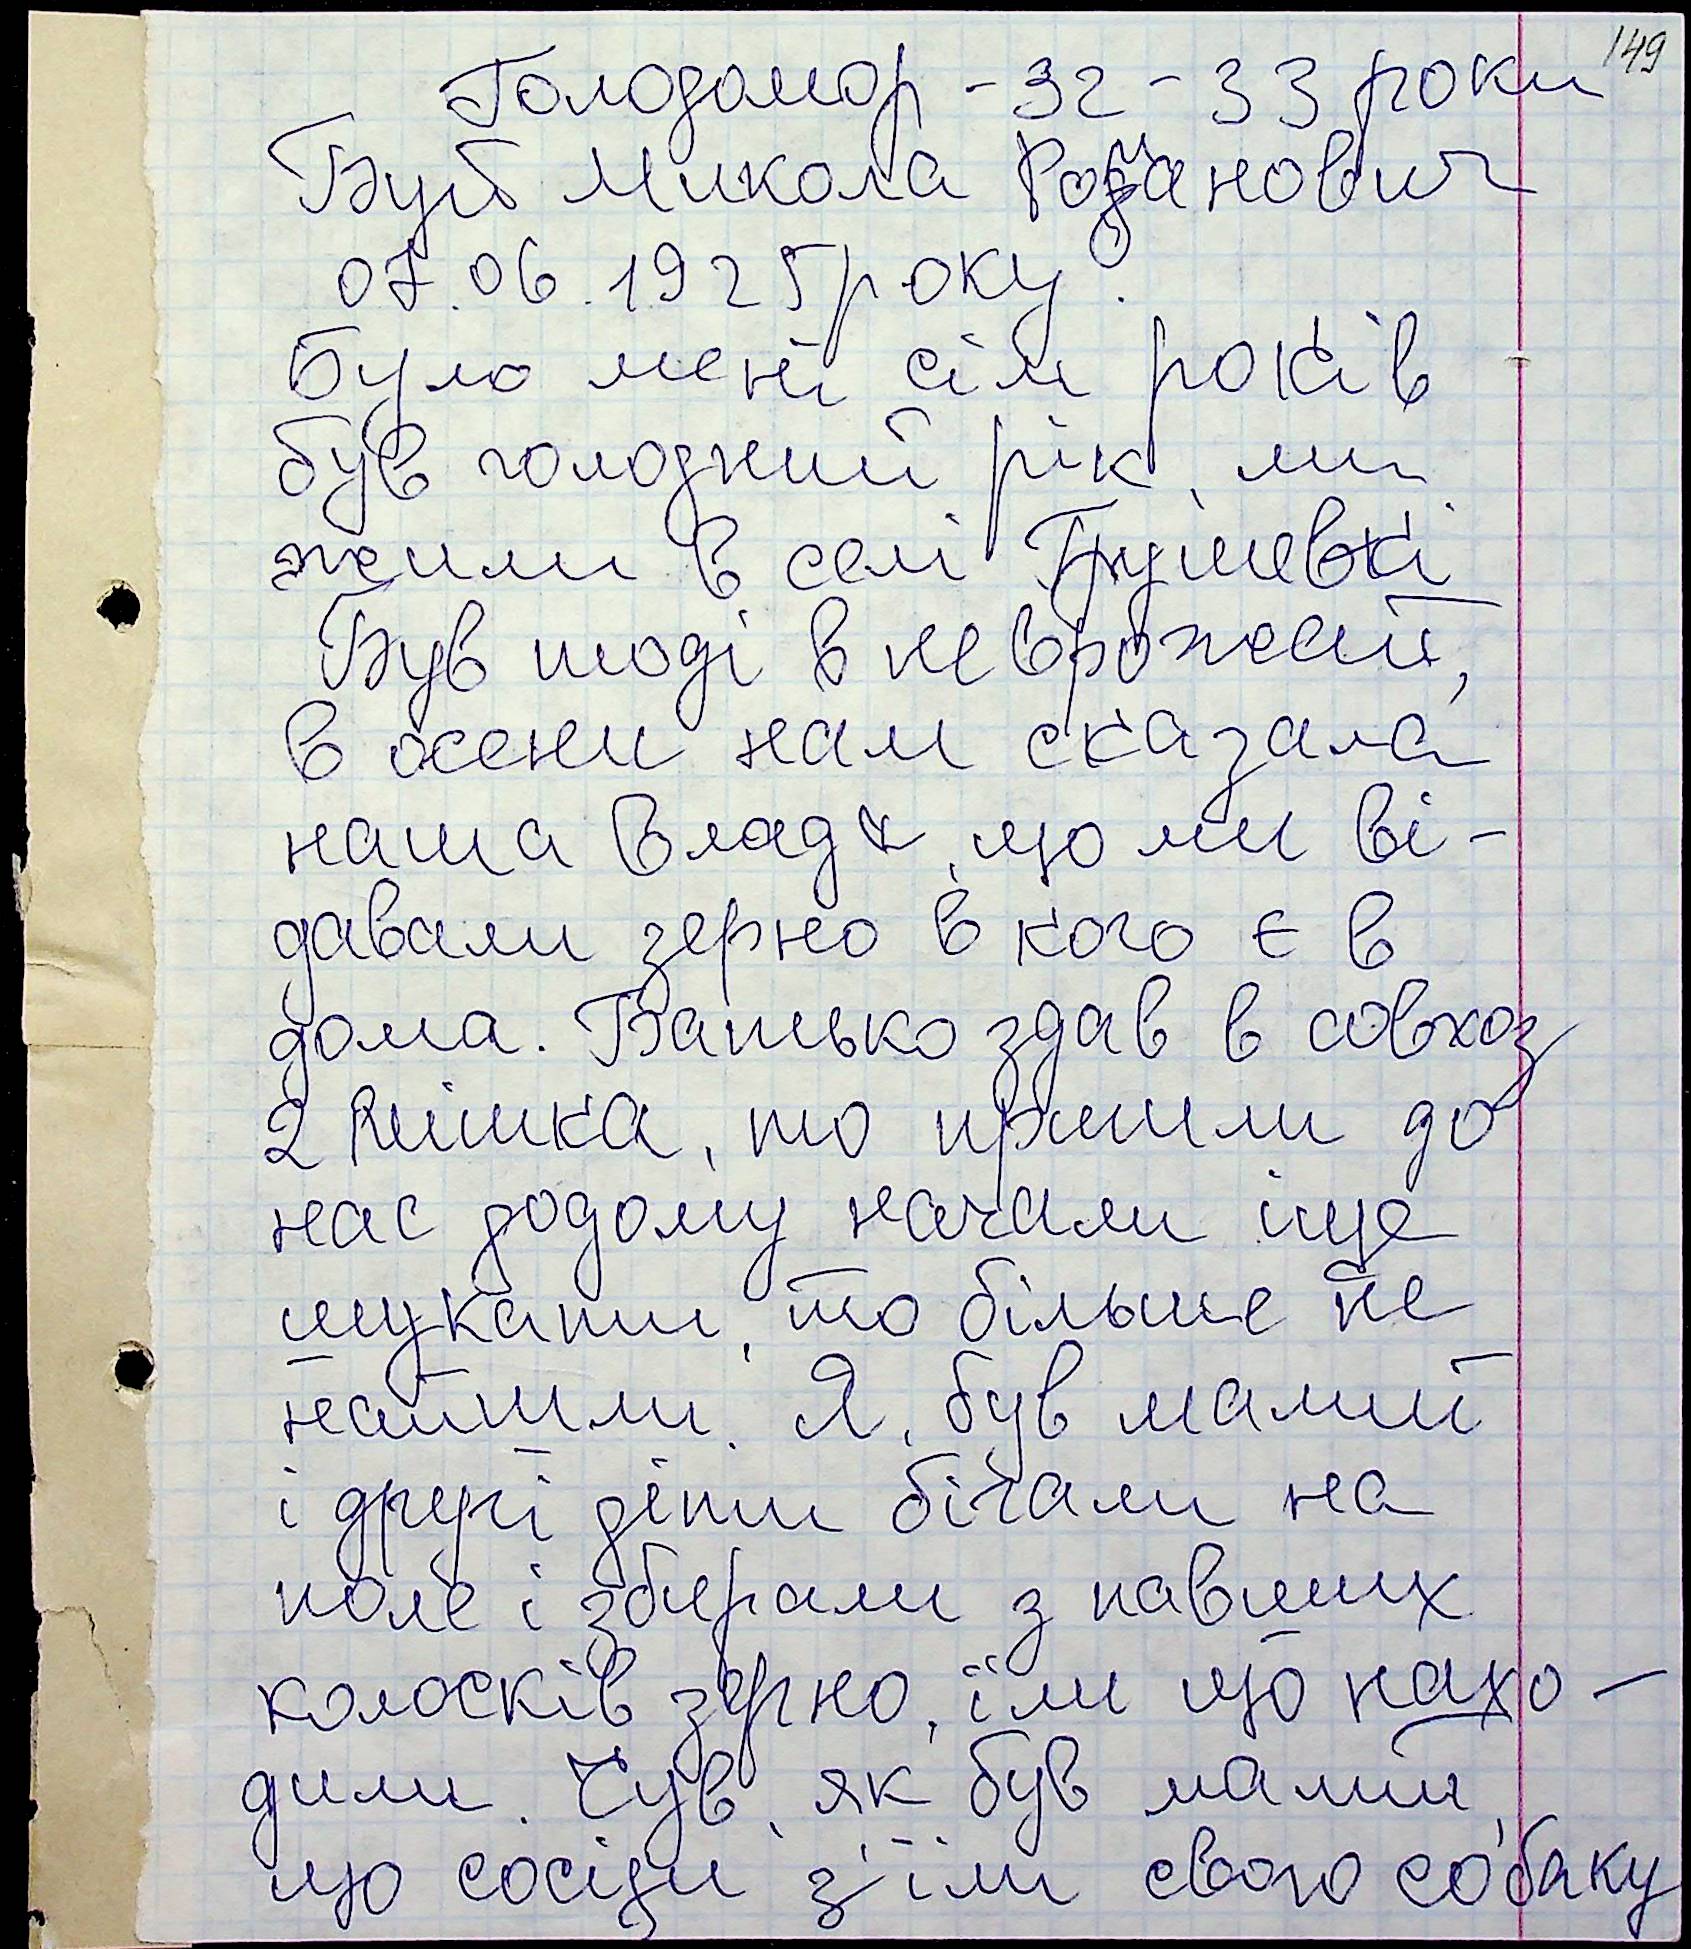 149
Голодомор - 32 - 33 роки
Буб Микола Романович
07.06.1925 року.
Було мені сім років
був голодний рік, ми
жили в селі Грушевкі
Був тоді в неврожай,
в осени нам сказала
наша влада, що ми ві-
давали зерно в кого є в
дома. Батько здав в совхоз
2 мішка, то пришли до
нас додому начали іще
шукати, то більше не
найшли. Я, був малий
і другі діти бігали на
поле і збирали з павших
колосків зерно, їли що нахо-
дили. Чув, як був малий,
що сосіди з'їли свого собаку